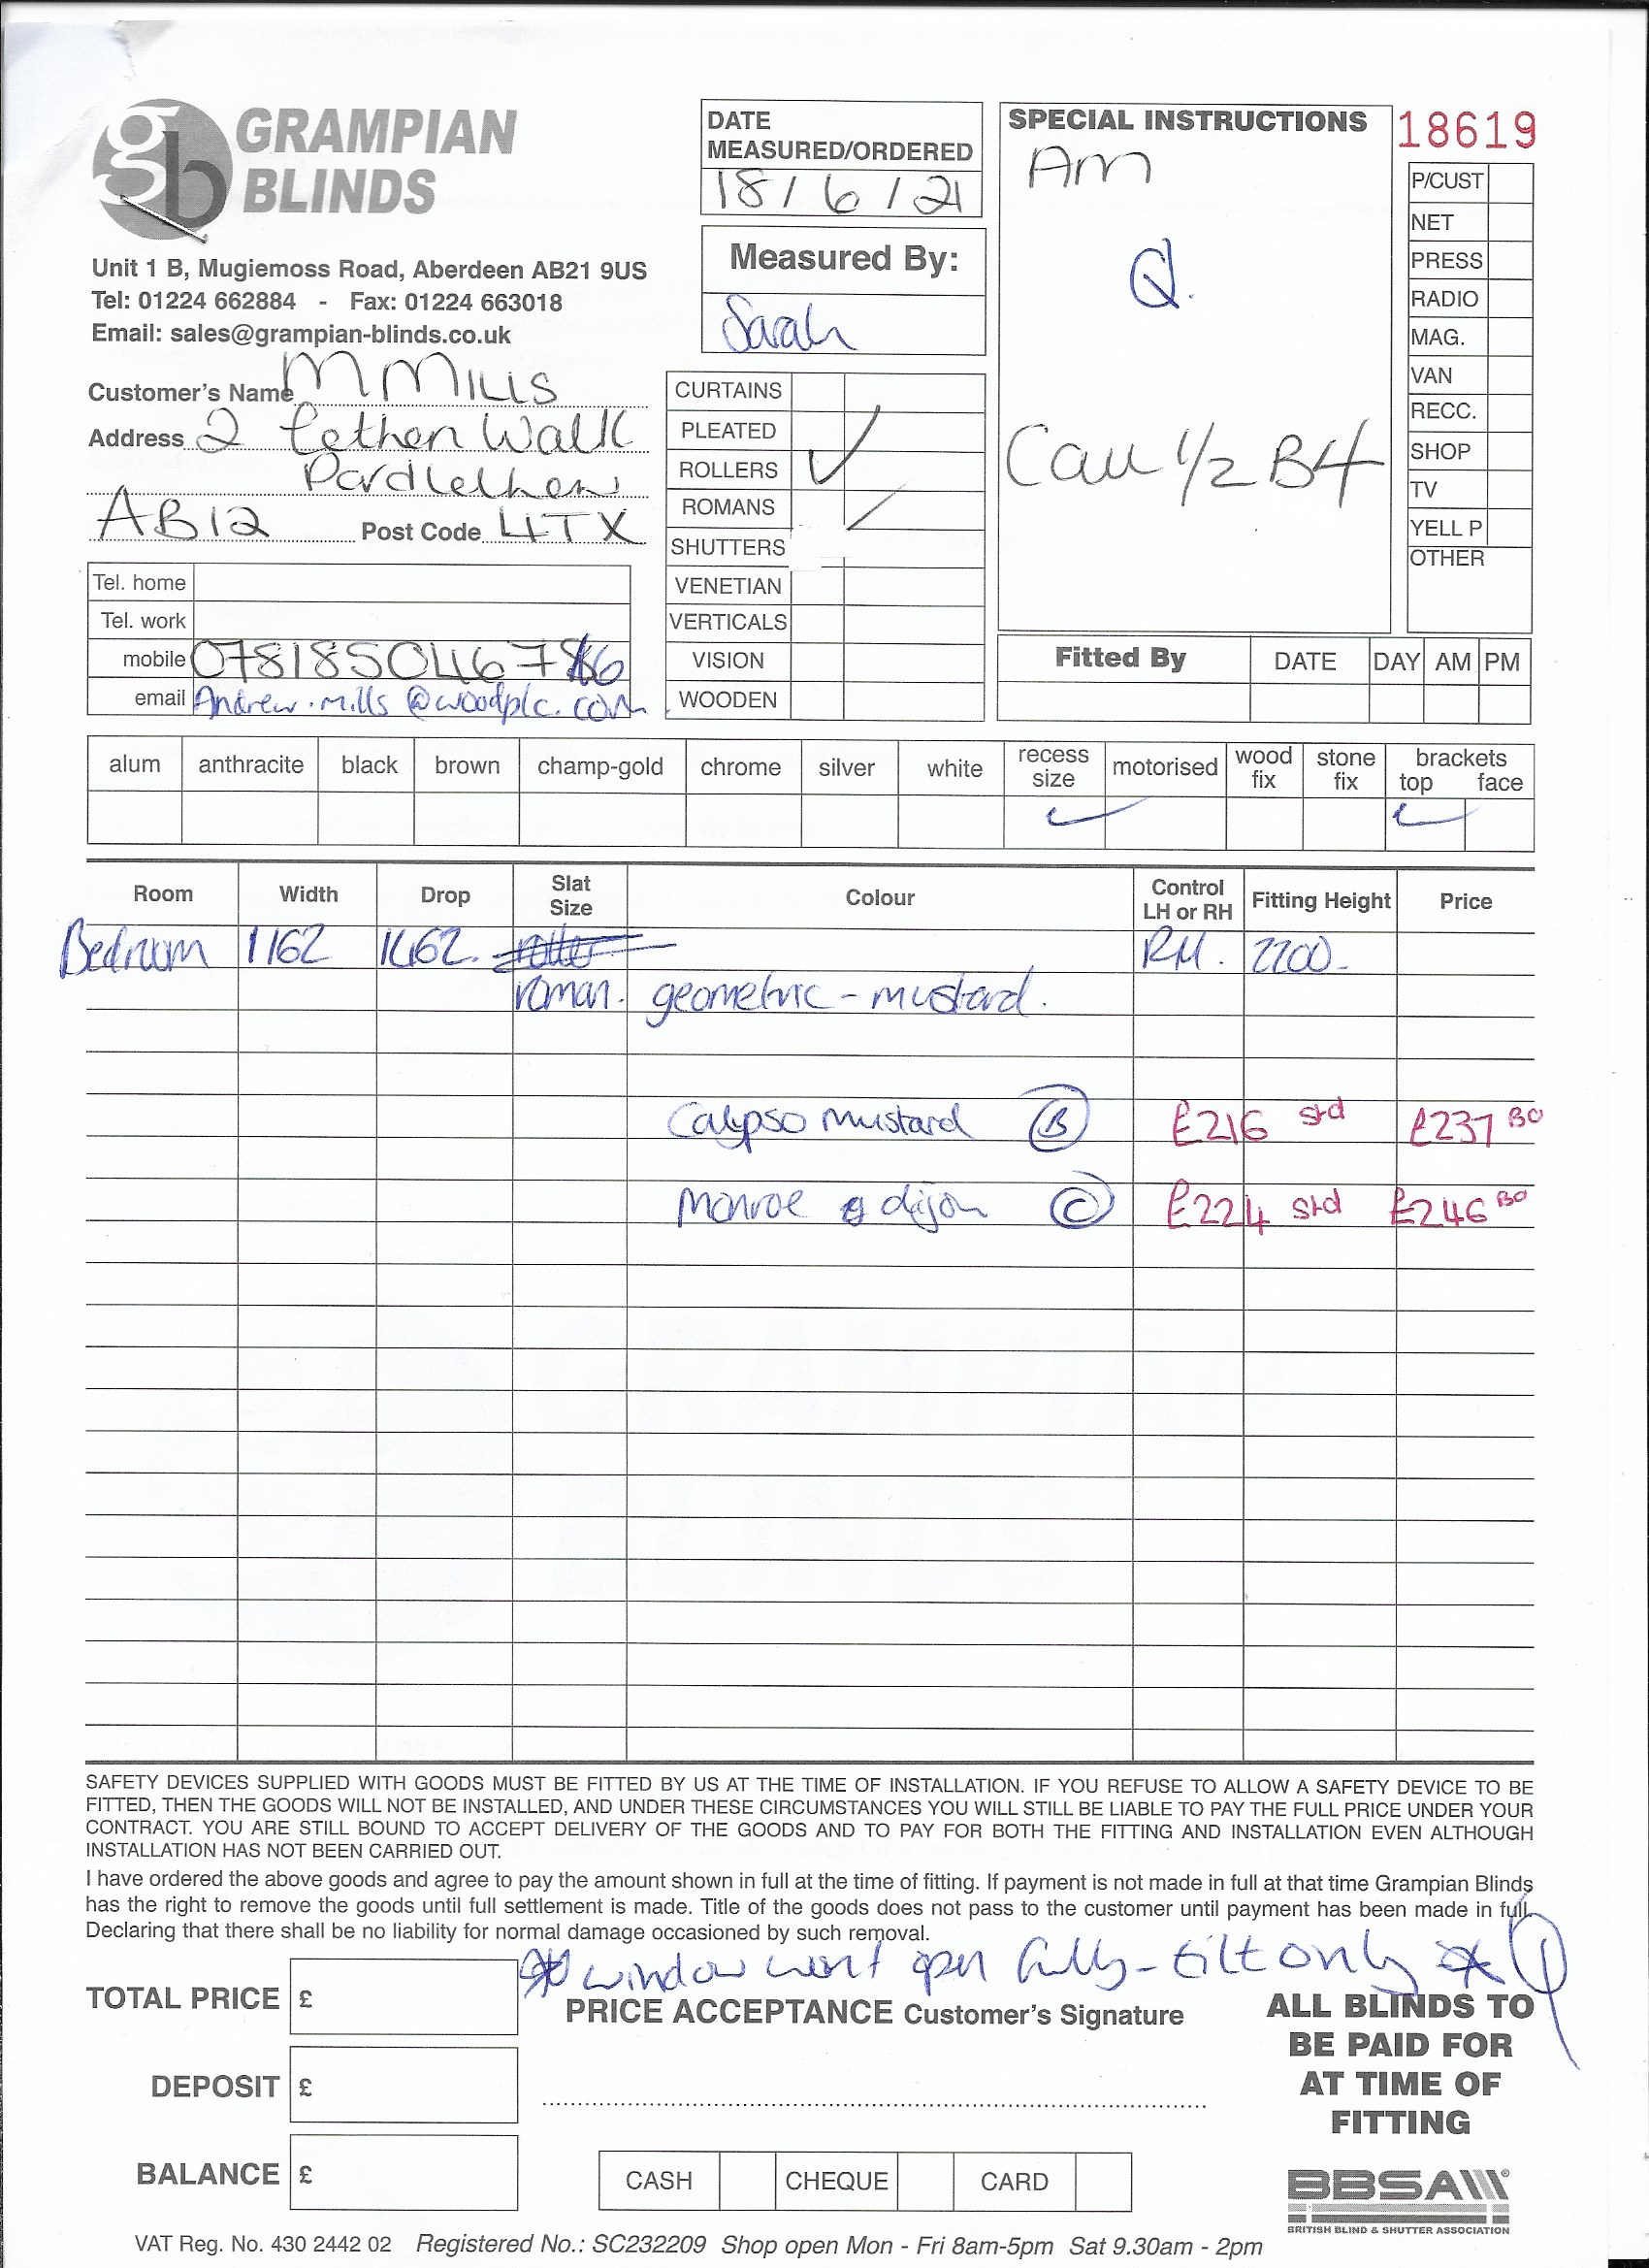 GRAMPIAN
BLINDS
Unit 1 B, Mugiemoss Road, Aberdeen AB21 9US
Tel: 01224 662884 - Fax: 01224 663018
Email: sales@grampian-blinds.co.uk
DATE
MEASURED/ORDERED
18/6/21
Measured By:
Sarah
SPECIAL INSTRUCTIONS
Am
Q.
Call 1/2 B4
18619
P/CUST
NET
PRESS
RADIO
MAG.
VAN
RECC.
SHOP
TV
YELL P
OTHER
Customer's Name M Mills
Address 2 Lethen Walk
Portlethen
AB12 Post Code 4TX
Tel. home
Tel. work
mobile
email Andrew.mills@woodplc.com
CURTAINS
PLEATED
ROLLERS
ROMANS
SHUTTERS
VENETIAN
VERTICALS
VISION
WOODEN
Fitted By DATE DAY AM PM
alum anthracite black brown champ-gold chrome silver white recess size motorised wood fix stone fix brackets top face
Room Width Drop Slat Size Colour Control LH or RH Fitting Height Price
Bedroom 1162 RH. 2200
roman. geometric - mustard.
Calypso mustard B £216 std £237 BO
Monroe dijon C £224 std £246 BO
SAFETY DEVICES SUPPLIED WITH GOODS MUST BE FITTED BY US AT THE TIME OF INSTALLATION. IF YOU REFUSE TO ALLOW A SAFETY DEVICE TO BE
FITTED, THEN THE GOODS WILL NOT BE INSTALLED, AND UNDER THESE CIRCUMSTANCES YOU WILL STILL BE LIABLE TO PAY THE FULL PRICE UNDER YOUR
CONTRACT. YOU ARE STILL BOUND TO ACCEPT DELIVERY OF THE GOODS AND TO PAY FOR BOTH THE FITTING AND INSTALLATION EVEN ALTHOUGH
INSTALLATION HAS NOT BEEN CARRIED OUT.
I have ordered the above goods and agree to pay the amount shown in full at the time of fitting. If payment is not made in full at that time Grampian Blinds
has the right to remove the goods until full settlement is made. Title of the goods does not pass to the customer until payment has been made in full.
Declaring that there shall be no liability for normal damage occasioned by such removal.
* window wont open fully - tilt only *
TOTAL PRICE £
PRICE ACCEPTANCE Customer's Signature
DEPOSIT £
BALANCE £
CASH CHEQUE CARD
ALL BLINDS TO
BE PAID FOR
AT TIME OF
FITTING
BBSA
BRITISH BLIND & SHUTTER ASSOCIATION
VAT Reg. No. 430 2442 02 Registered No.: SC232209 Shop open Mon - Fri 8am-5pm Sat 9.30am - 2pm